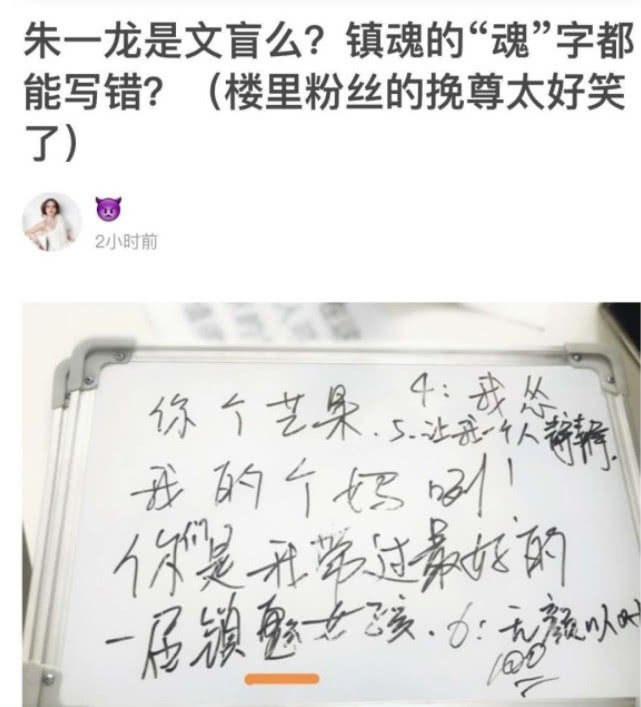 朱一龙是文盲么？镇魂的“魂”字都
能写错？（楼里粉丝的挽尊太好笑
了）
😈
2小时前
你个芒果.
4：我怂
5.让我一个人静静.
我的个妈咧！
你们是我带过最好的
一届镇魂女孩.
6：无颜以对
100